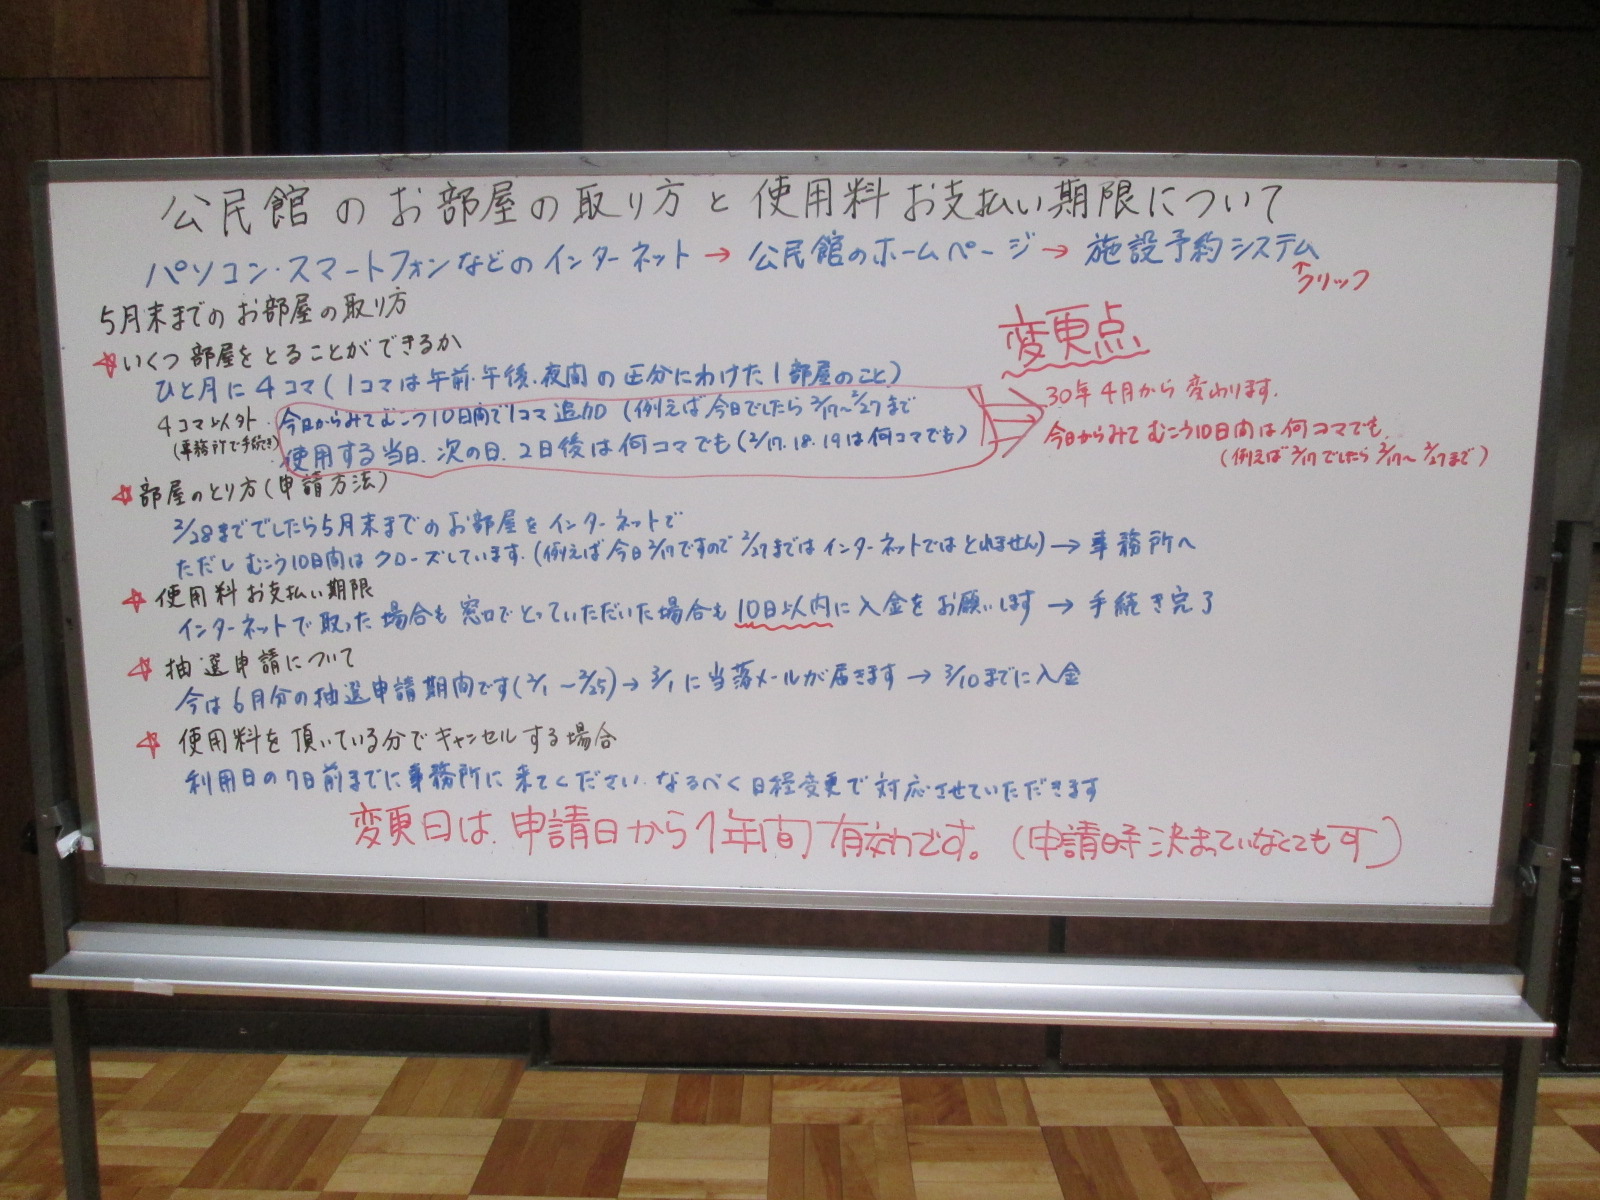 公民館のお部屋の取り方と使用料お支払い期限について
パソコン・スマートフォンなどのインターネット→公民館のホームページ→施設予約システム
↑クリック
5月末までのお部屋の取り方
☆いくつ部屋をとることができるか
ひと月に4コマ(1コマは午前・午後・夜間の区分にわけた1部屋のこと)
4コマ以外・今日からみてむこう10日間で1コマ追加(例えば今日でしたら2/17~2/27まで
(事務所で手続き)
使用する当日、次の日、2日後は何コマでも(2/17.18.19は何コマでも)
変更点
30年4月から変わります。
今日からみてむこう10日間は何コマでも
(例えば2/17でしたら2/17~2/27まで)
☆部屋のとり方(申請方法)
2/28まででしたら5月末までのお部屋をインターネットで
ただしむこう10日間はクローズしています。(例えば今日2/17ですので2/27まではインターネットではとれません)→事務所へ
☆使用料お支払い期限
インターネットで取った場合も窓口でとっていただいた場合も10日以内に入金をお願いします→手続き完了
☆抽選申請について
今は6月分の抽選申請期間です(2/1~2/25)→3/1に当落メールが届きます→3/10までに入金
☆使用料を頂いている分でキャンセルする場合
利用日の7日前までに事務所に来てください。なるべく日経変更で対応させていただきます
変更日は、申請日から1年間有効です。(申請時決まっていなくてもす)